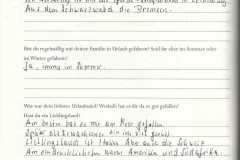 Aus dem Schwarzwald die Bremsen.
Bist du regelmäßig mit deiner Familie in Urlaub gefahren? Seid ihr eher im Sommer oder
im Winter gefahren?
Ja, immer im Sommer.
Was war dein liebstes Urlaubsland? Weshalb hat es dir da so gut gefallen?
Hast du ein Lieblingsland?
Am besten hat es mir am Meer gefallen
Später
Lieblingsland ist Italien aber auch die Schweiz.
Am eindrücklichsten waren Amerika und Südafrika.